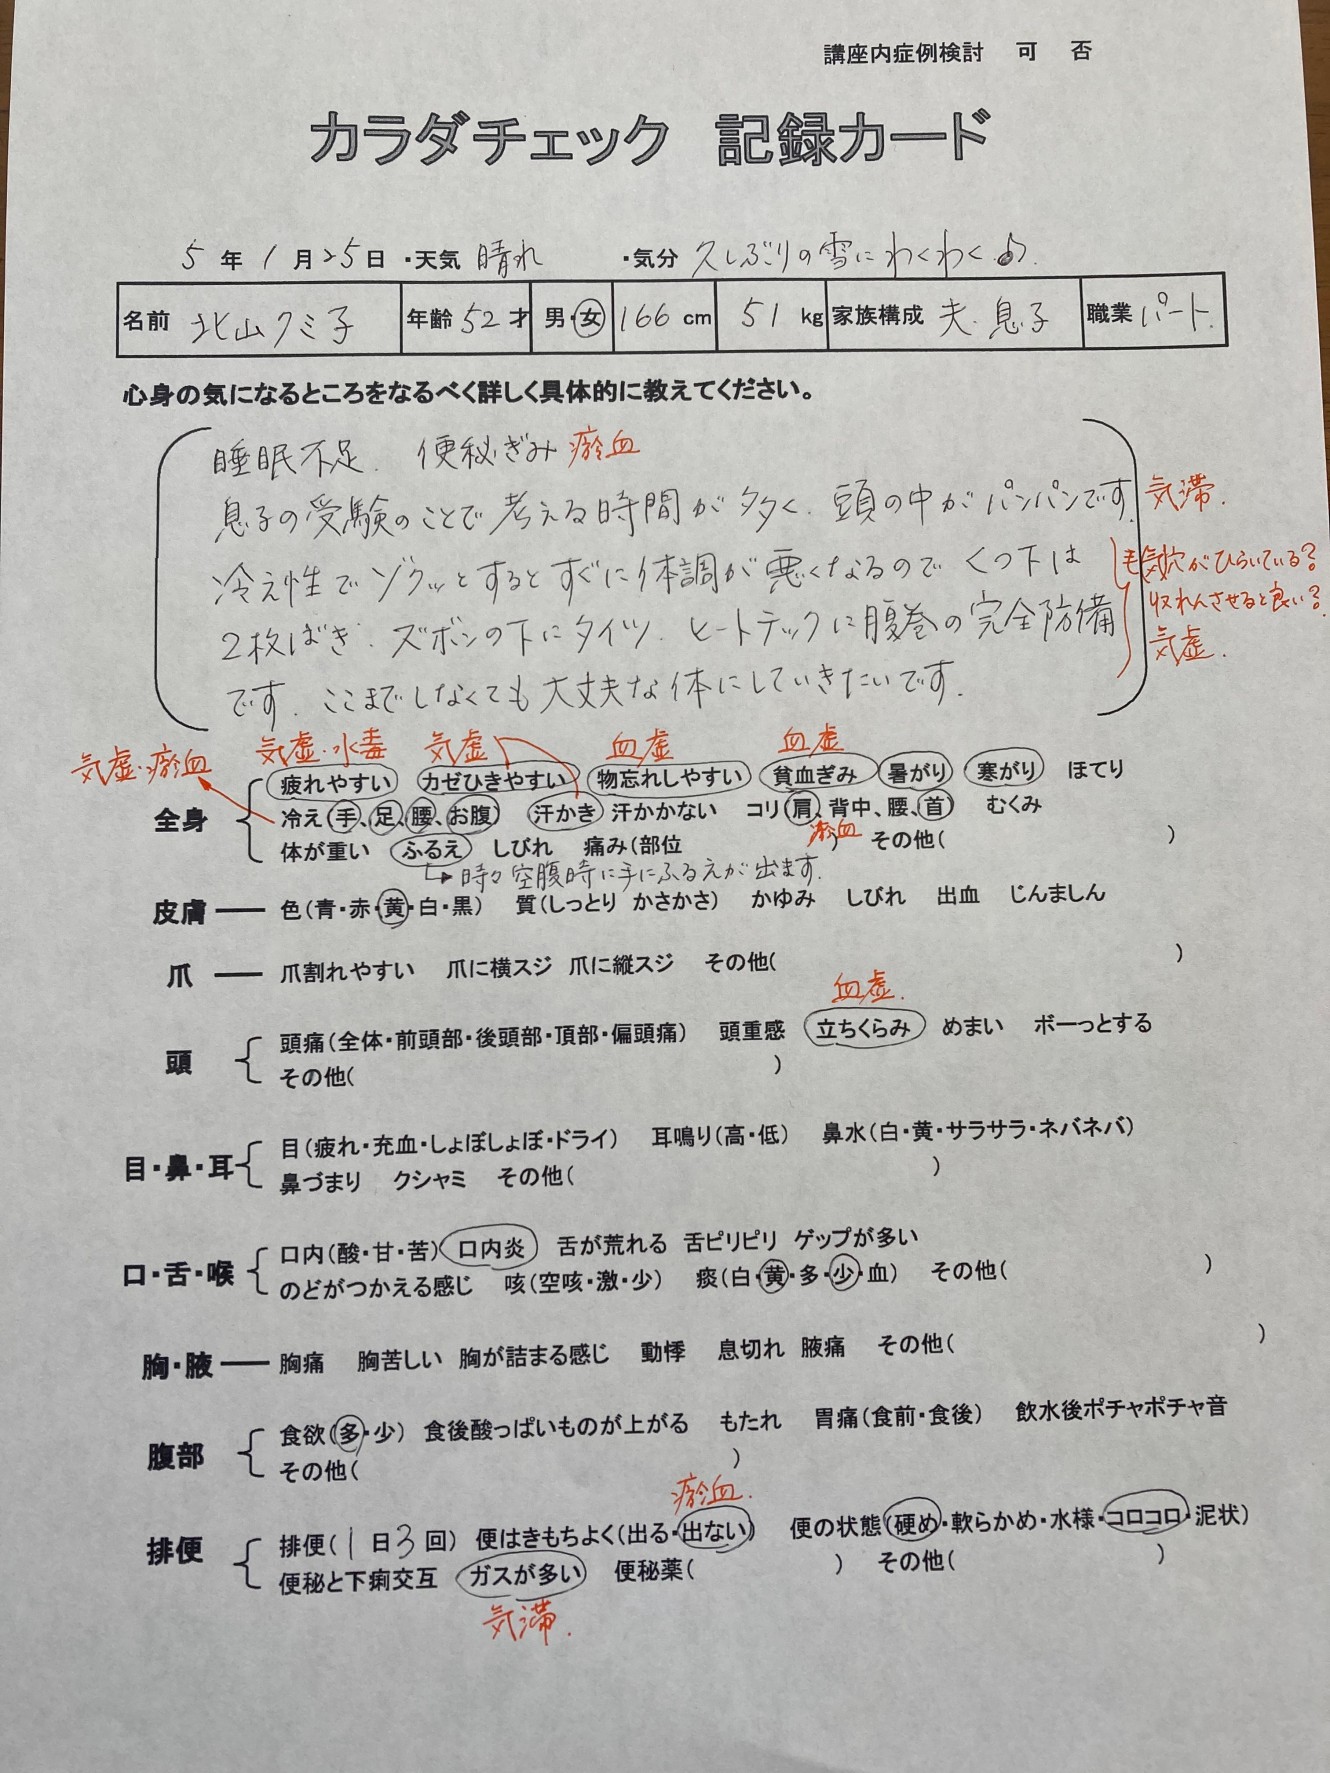 講座内症例検討 可 否
カラダチェック 記録カード
5 年 1 月 25 日 ・天気 晴れ ・気分 久しぶりの雪にわくわく♪.
名前 北山クミ子 年齢 52 才 男・女 166 cm 51 kg 家族構成 夫・息子 職業 パート.
心身の気になるところをなるべく詳しく具体的に教えてください。
睡眠不足. 便秘ぎみ 瘀血
息子の受験のことで考える時間が多く、頭の中がパンパンです. 気滞.
冷え性でゾクッとするとすぐに体調が悪くなるので くつ下は 毛気穴がひらいている?
収れんさせると良い?
2枚ばき. ズボンの下にタイツ. ヒートテックに腹巻の完全防備 気虚.
です. ここまでしなくても大丈夫な体にしていきたいです.
気虚・瘀血 気虚・水毒 気虚 血虚 血虚
全身 疲れやすい カゼひきやすい 物忘れしやすい 貧血ぎみ 暑がり 寒がり ほてり
冷え(手、足、腰、お腹) 汗かき 汗かかない コリ(肩、背中、腰、首) むくみ
瘀血
体が重い ふるえ しびれ 痛み(部位 ) その他( )
時々空腹時に手にふるえが出ます.
皮膚 色(青・赤・黄・白・黒) 質(しっとり かさかさ) かゆみ しびれ 出血 じんましん
爪 爪割れやすい 爪に横スジ 爪に縦スジ その他( )
血虚.
頭 頭痛(全体・前頭部・後頭部・頂部・偏頭痛) 頭重感 立ちくらみ めまい ボーっとする
その他( )
目・鼻・耳 目(疲れ・充血・しょぼしょぼ・ドライ) 耳鳴り(高・低) 鼻水(白・黄・サラサラ・ネバネバ)
鼻づまり クシャミ その他( )
口・舌・喉 口内(酸・甘・苦) 口内炎 舌が荒れる 舌ピリピリ ゲップが多い
のどがつかえる感じ 咳(空咳・激・少) 痰(白・黄・多・少・血) その他( )
胸・腋 胸痛 胸苦しい 胸が詰まる感じ 動悸 息切れ 腋痛 その他( )
腹部 食欲(多・少) 食後酸っぱいものが上がる もたれ 胃痛(食前・食後) 飲水後ポチャポチャ音
その他( )
瘀血.
排便 排便(1 日 3 回) 便はきもちよく(出る・出ない) 便の状態(硬め・軟らかめ・水様・コロコロ・泥状)
便秘と下痢交互 ガスが多い 便秘薬( ) その他( )
気滞.